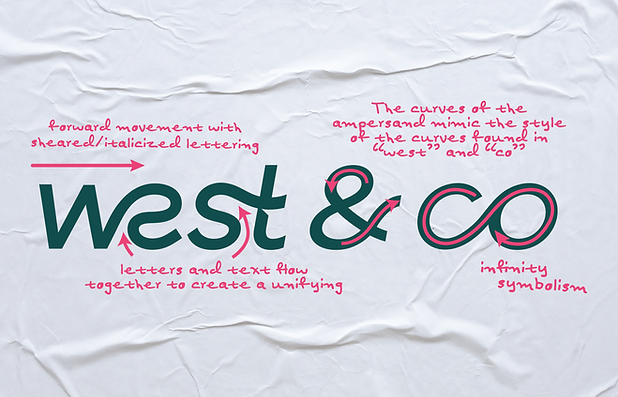 forward movement with
sheared/italicized lettering
The curves of the
ampersand mimic the style
of the curves found in
"west" and "co"
west & co
letters and text flow
together to create a unifying
infinity
symbolism